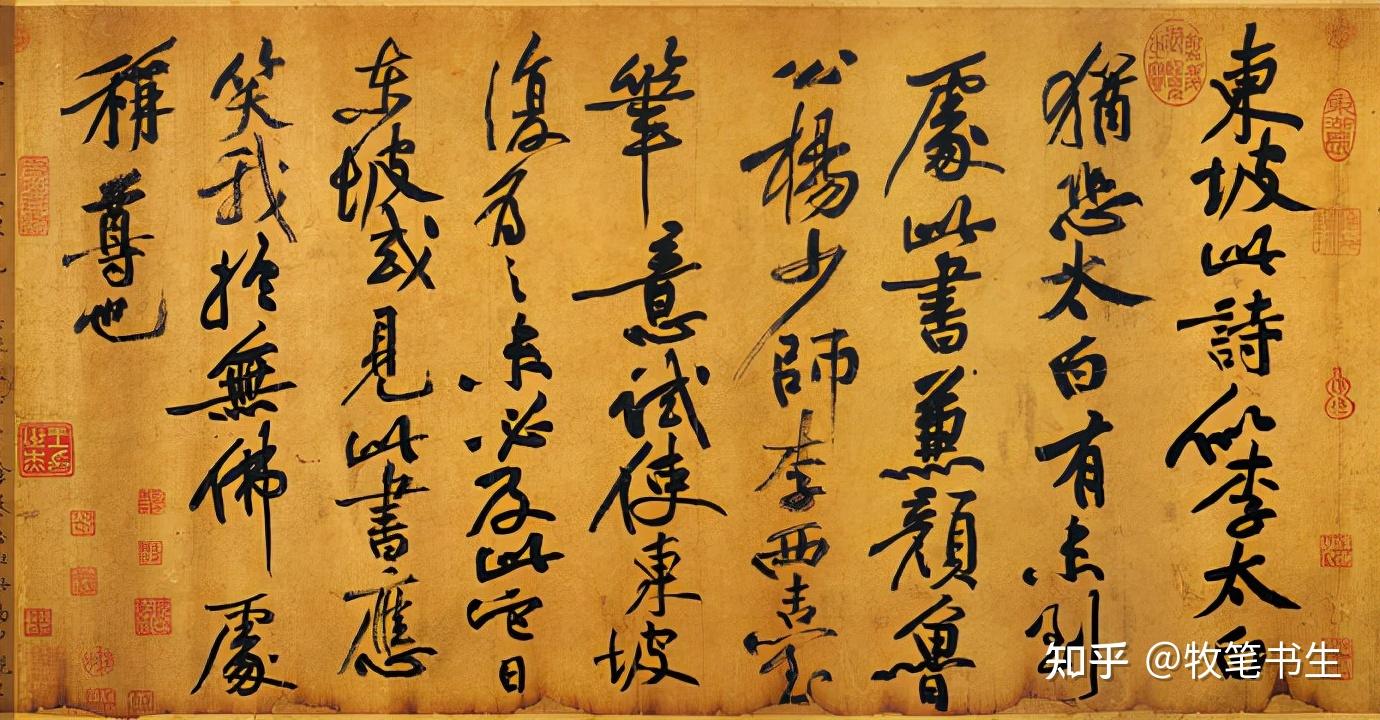 東坡此詩似李太白
猶恐太白有未到
處此書兼顏魯
公楊少師李西臺
筆意試使東坡
復為之未必及此它日
東坡或見此書應
笑我於無佛處
稱尊也
知乎 @牧笔书生